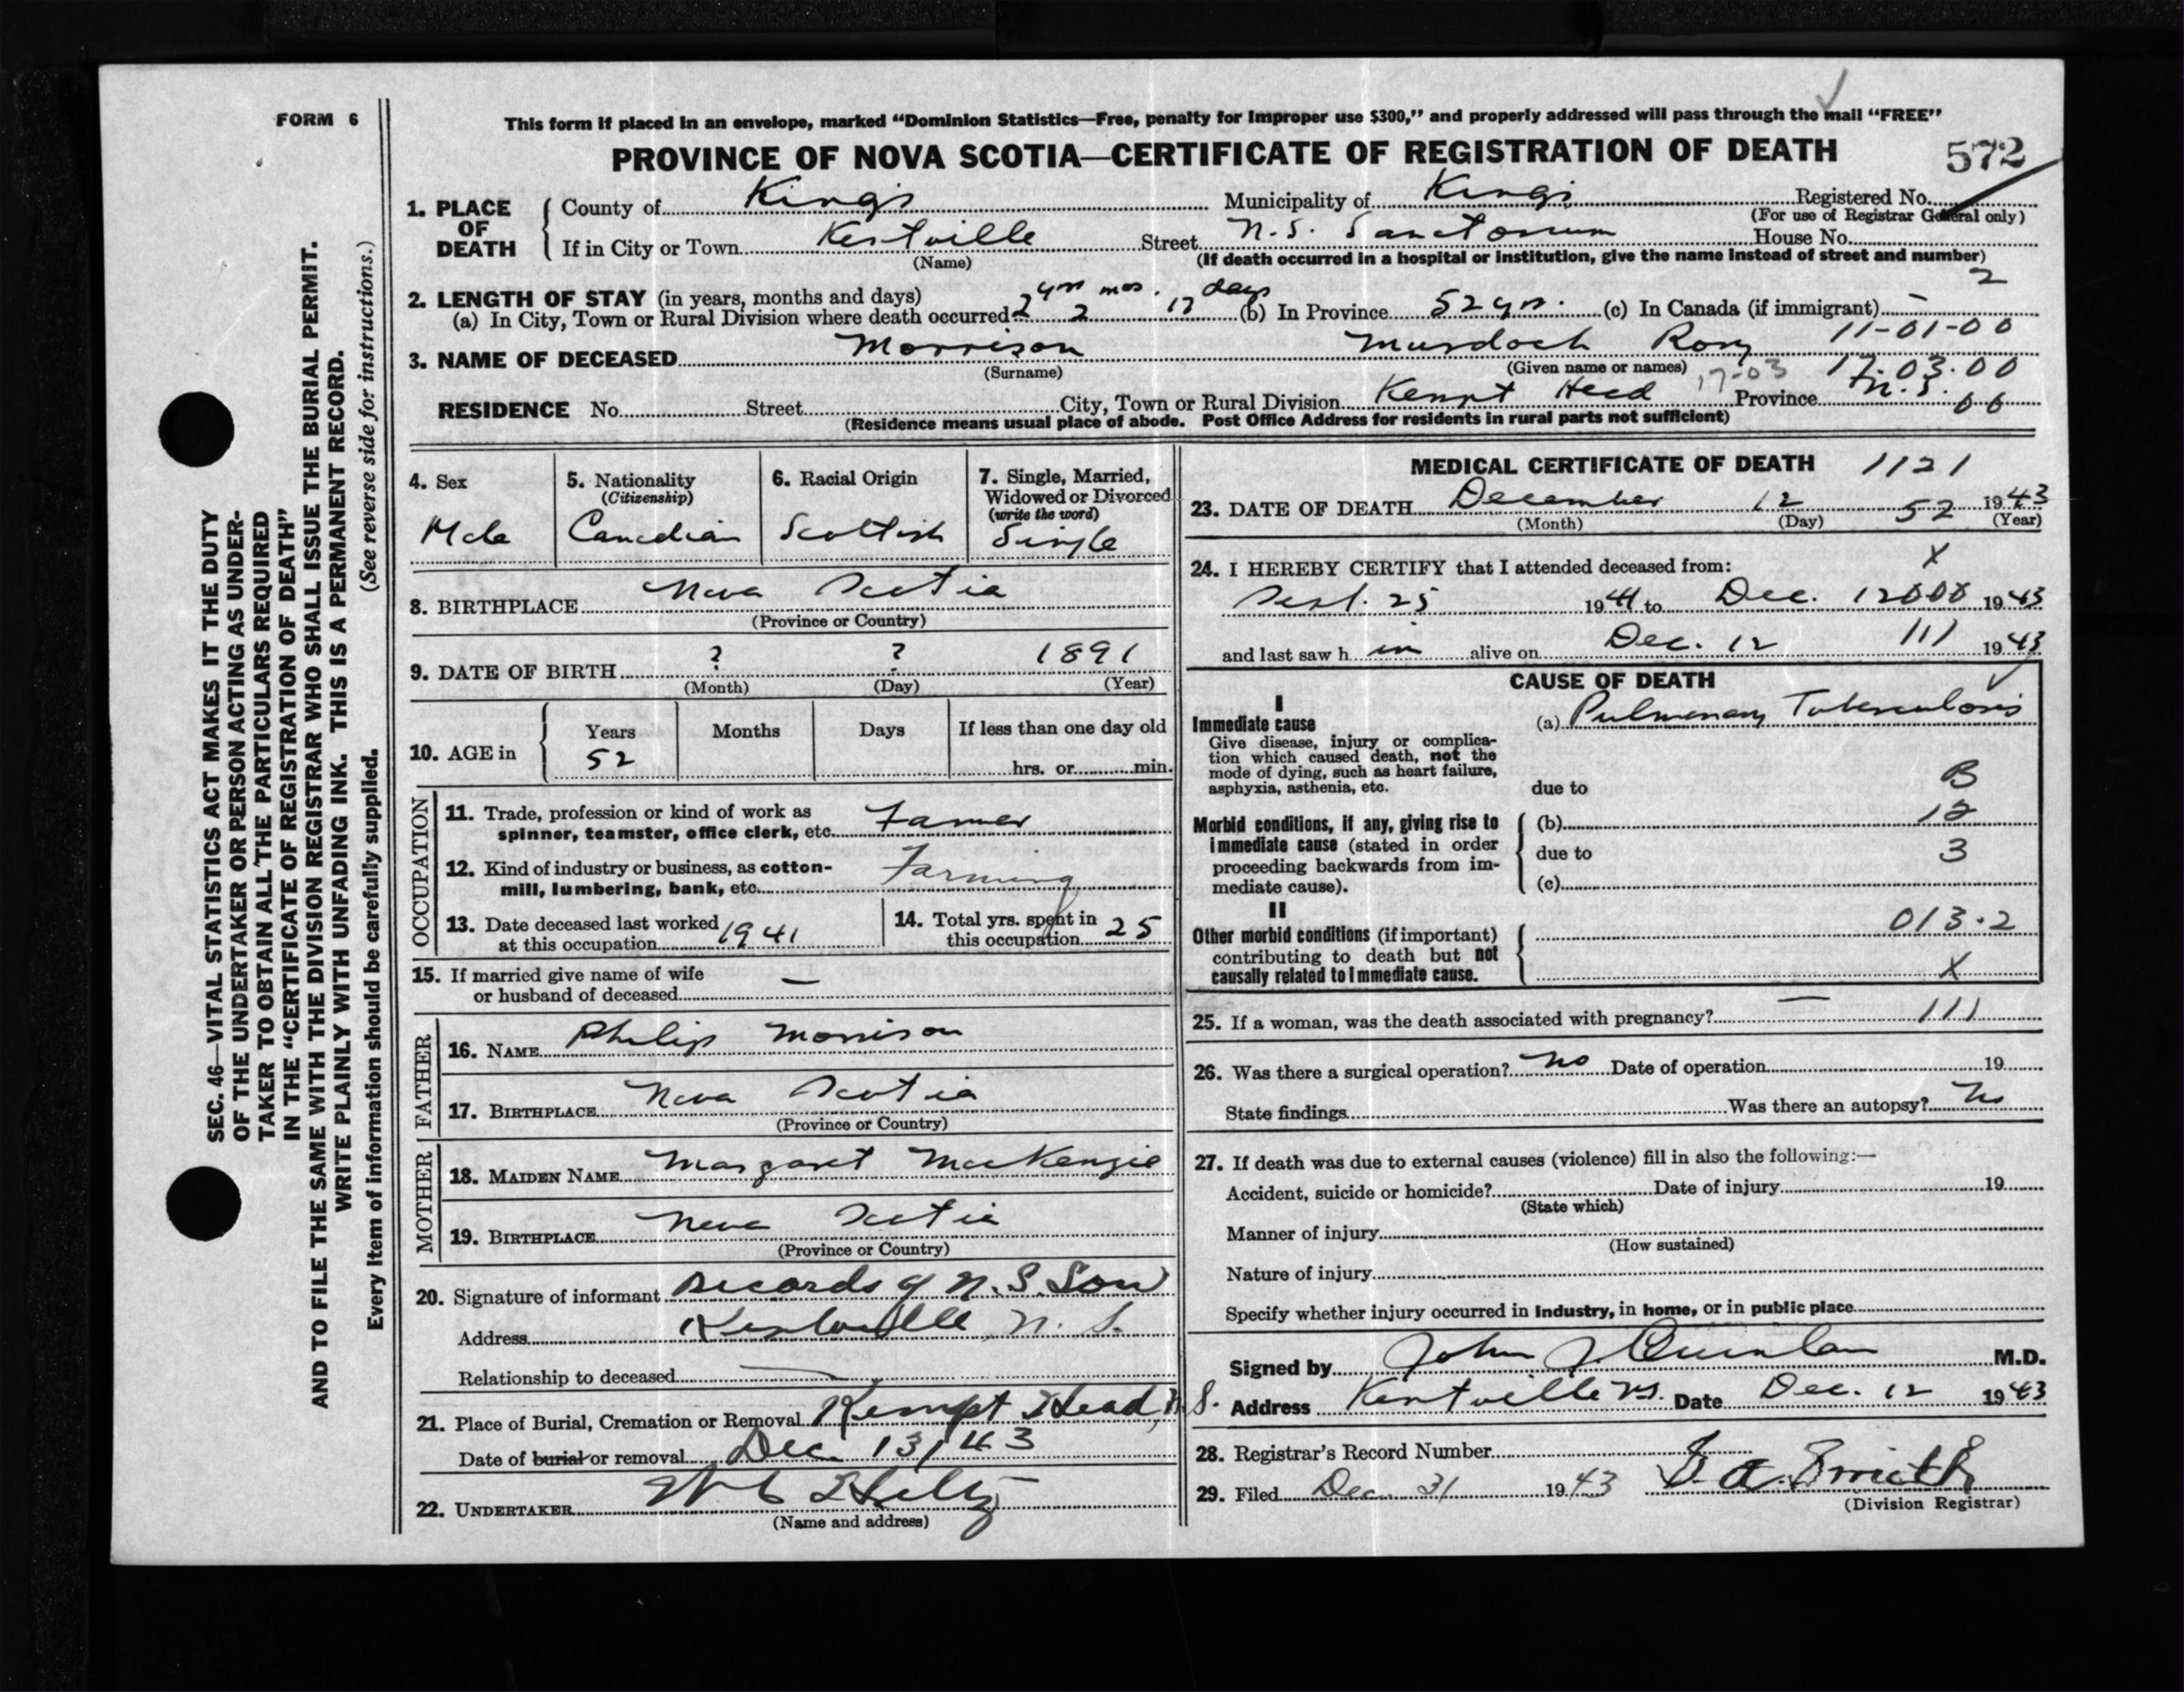 FORM 6
This form if placed in an envelope, marked "Dominion Statistics—Free, penalty for improper use $300," and properly addressed will pass through the mail "FREE"
PROVINCE OF NOVA SCOTIA—CERTIFICATE OF REGISTRATION OF DEATH 572
1. PLACE OF DEATH
County of Kings Municipality of Kings Registered No.
(For use of Registrar General only)
If in City or Town Kentville Street N.S. Sanatorium House No.
(Name) (If death occurred in a hospital or institution, give the name instead of street and number)
2
2. LENGTH OF STAY (in years, months and days) yrs mos. days
(a) In City, Town or Rural Division where death occurred 2 2 17 (b) In Province 52 yrs. (c) In Canada (if immigrant) –
11-01-00
3. NAME OF DECEASED Morrison Murdoch Rory
(Surname) (Given name or names) 17-03 17-03-00
RESIDENCE No. Street City, Town or Rural Division Kempt Head Province N.S. 06
(Residence means usual place of abode. Post Office Address for residents in rural parts not sufficient)
4. Sex Male
5. Nationality (Citizenship) Canadian
6. Racial Origin Scottish
7. Single, Married, Widowed or Divorced (write the word) Single
8. BIRTHPLACE Nova Scotia
(Province or Country)
9. DATE OF BIRTH ? ? 1891
(Month) (Day) (Year)
10. AGE in Years Months Days If less than one day old
52 hrs. or min.
OCCUPATION
11. Trade, profession or kind of work as spinner, teamster, office clerk, etc. Farmer
12. Kind of industry or business, as cotton-mill, lumbering, bank, etc. Farming
13. Date deceased last worked at this occupation 1941
14. Total yrs. spent in this occupation 25
15. If married give name of wife or husband of deceased —
FATHER
16. NAME Philip Morrison
17. BIRTHPLACE Nova Scotia
(Province or Country)
MOTHER
18. MAIDEN NAME Margaret MacKenzie
19. BIRTHPLACE Nova Scotia
(Province or Country)
20. Signature of informant Records of N.S. San
Address Kentville, N.S.
Relationship to deceased —
21. Place of Burial, Cremation or Removal Kempt Head, N.S.
Date of burial or removal Dec 13/43
22. UNDERTAKER
(Name and address)
MEDICAL CERTIFICATE OF DEATH 1121
23. DATE OF DEATH December 12 52 1943
(Month) (Day) (Year)
24. I HEREBY CERTIFY that I attended deceased from: X
Sept. 25 1941 to Dec. 12 000 1943
and last saw him alive on Dec. 12 111 1943
CAUSE OF DEATH
I
Immediate cause (a) Pulmonary Tuberculosis
Give disease, injury or complication which caused death, not the mode of dying, such as heart failure, asphyxia, asthenia, etc.
due to B
Morbid conditions, if any, giving rise to immediate cause (stated in order proceeding backwards from immediate cause).
(b) 12
due to 3
(c)
II
Other morbid conditions (if important) contributing to death but not causally related to immediate cause.
013.2
X
25. If a woman, was the death associated with pregnancy? — 111
26. Was there a surgical operation? No Date of operation 19
State findings Was there an autopsy? No
27. If death was due to external causes (violence) fill in also the following:—
Accident, suicide or homicide? Date of injury 19
(State which)
Manner of injury
(How sustained)
Nature of injury
Specify whether injury occurred in industry, in home, or in public place
Signed by John J. Quinlan M.D.
Address Kentville N.S. Date Dec. 12 1943
28. Registrar's Record Number
29. Filed Dec 31 1943 Smith
(Division Registrar)
SEC. 46—VITAL STATISTICS ACT MAKES IT THE DUTY
OF THE UNDERTAKER OR PERSON ACTING AS UNDER-
TAKER TO OBTAIN ALL THE PARTICULARS REQUIRED
IN THE "CERTIFICATE OF REGISTRATION OF DEATH"
AND TO FILE THE SAME WITH THE DIVISION REGISTRAR WHO SHALL ISSUE THE BURIAL PERMIT.
WRITE PLAINLY WITH UNFADING INK. THIS IS A PERMANENT RECORD.
Every item of information should be carefully supplied. (See reverse side for instructions.)